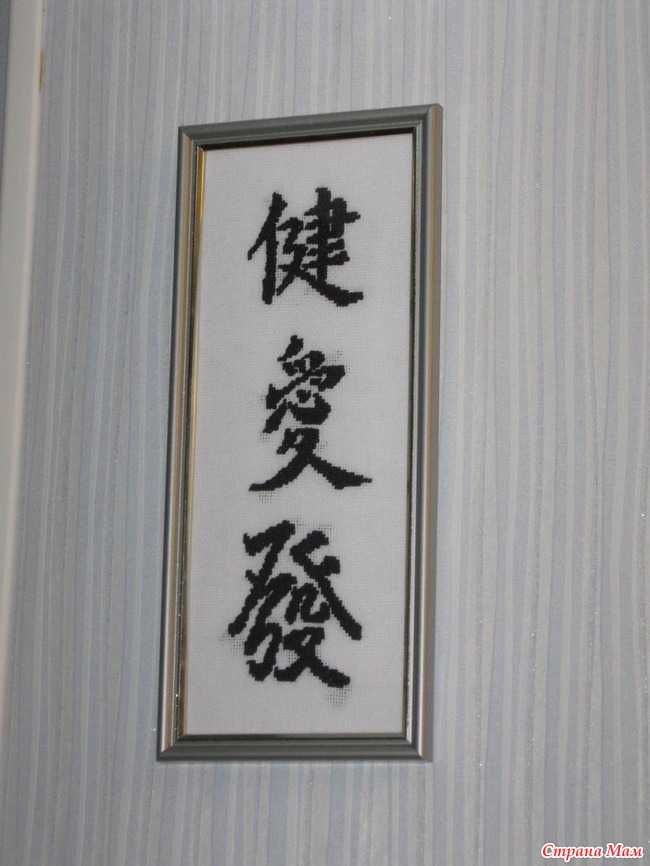 健
愛
發
Страна Мам